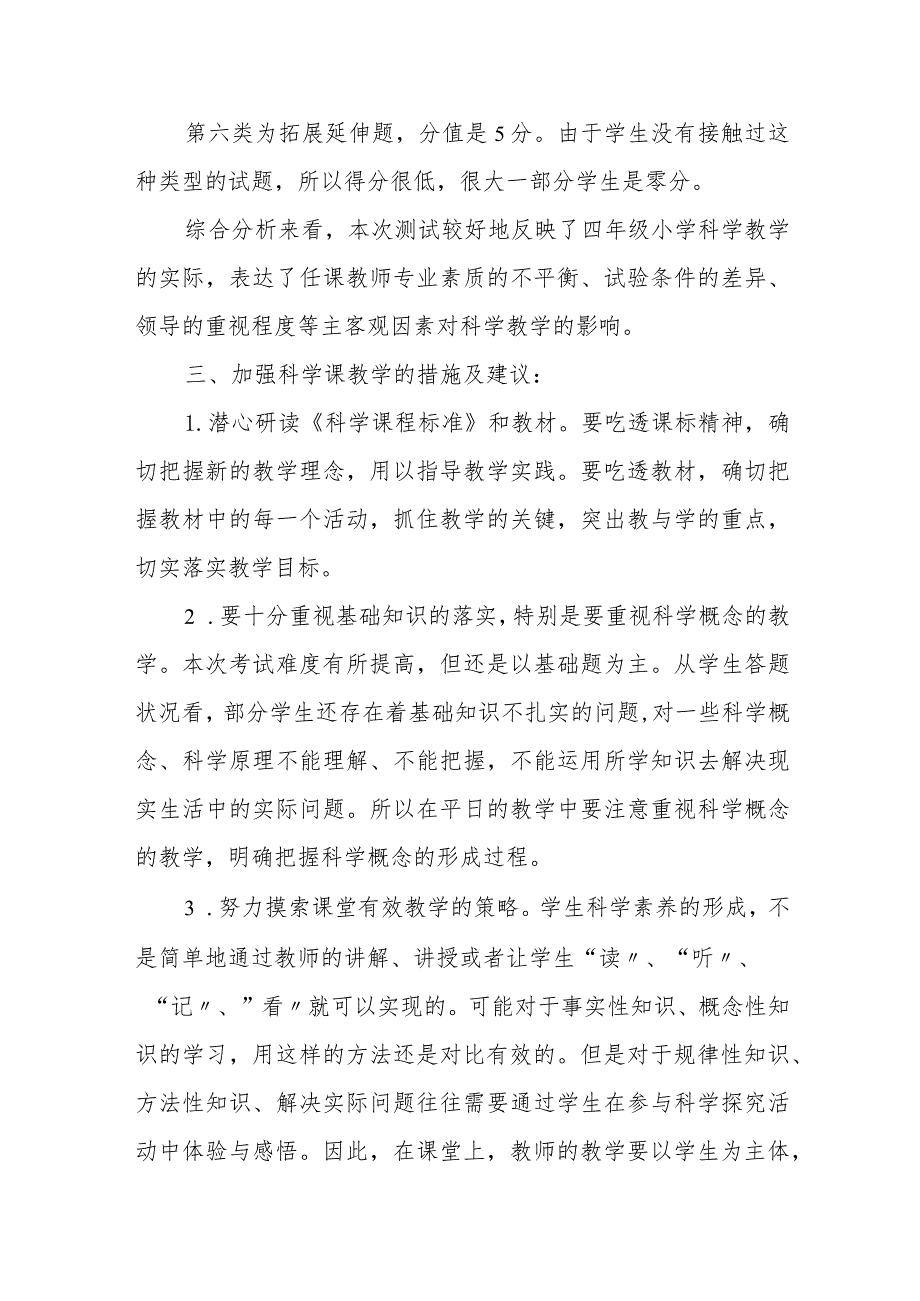 第六类为拓展延伸题，分值是5分。由于学生没有接触过这
种类型的试题，所以得分很低，很大一部分学生是零分。
综合分析来看，本次测试较好地反映了四年级小学科学教学
的实际，表达了任课教师专业素质的不平衡、试验条件的差异、
领导的重视程度等主客观因素对科学教学的影响。
三、加强科学课教学的措施及建议：
1.潜心研读《科学课程标准》和教材。要吃透课标精神，确
切把握新的教学理念，用以指导教学实践。要吃透教材，确切把
握教材中的每一个活动，抓住教学的关键，突出教与学的重点，
切实落实教学目标。
2 .要十分重视基础知识的落实,特别是要重视科学概念的教
学。本次考试难度有所提高，但还是以基础题为主。从学生答题
状况看,部分学生还存在着基础知识不扎实的问题,对一些科学概
念、科学原理不能理解、不能把握，不能运用所学知识去解决现
实生活中的实际问题。所以在平日的教学中要注意重视科学概念
的教学，明确把握科学概念的形成过程。
3 .努力摸索课堂有效教学的策略。学生科学素养的形成，不
是简单地通过教师的讲解、讲授或者让学生“读〃、“听〃、
“记〃、”看〃就可以实现的。可能对于事实性知识、概念性知
识的学习，用这样的方法还是对比有效的。但是对于规律性知识、
方法性知识、解决实际问题往往需要通过学生在参与科学探究活
动中体验与感悟。因此，在课堂上，教师的教学要以学生为主体，